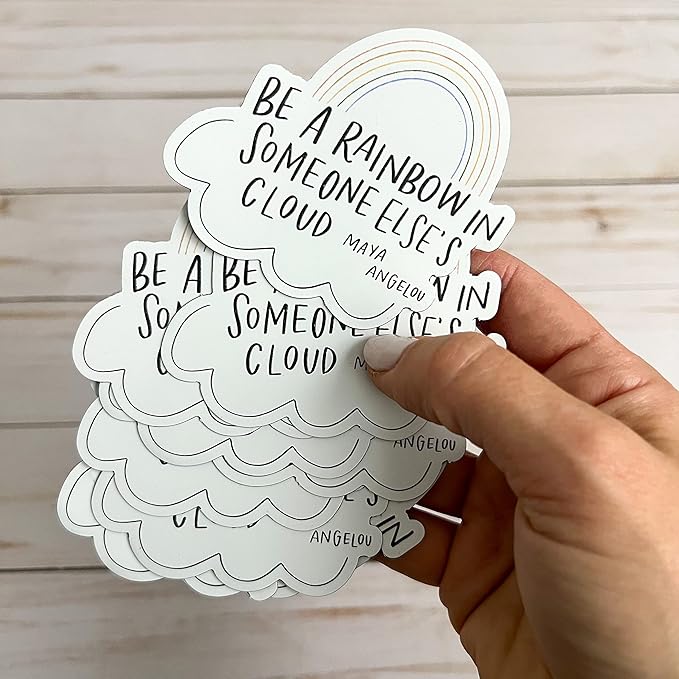 BE A RAINBOW IN
SOMEONE ELSE'S
CLOUD MAYA
ANGELOU
BE A
SO
BE
IN
SOMEONE ELSE'S
CLOUD
ANGELOU
ANGELOU